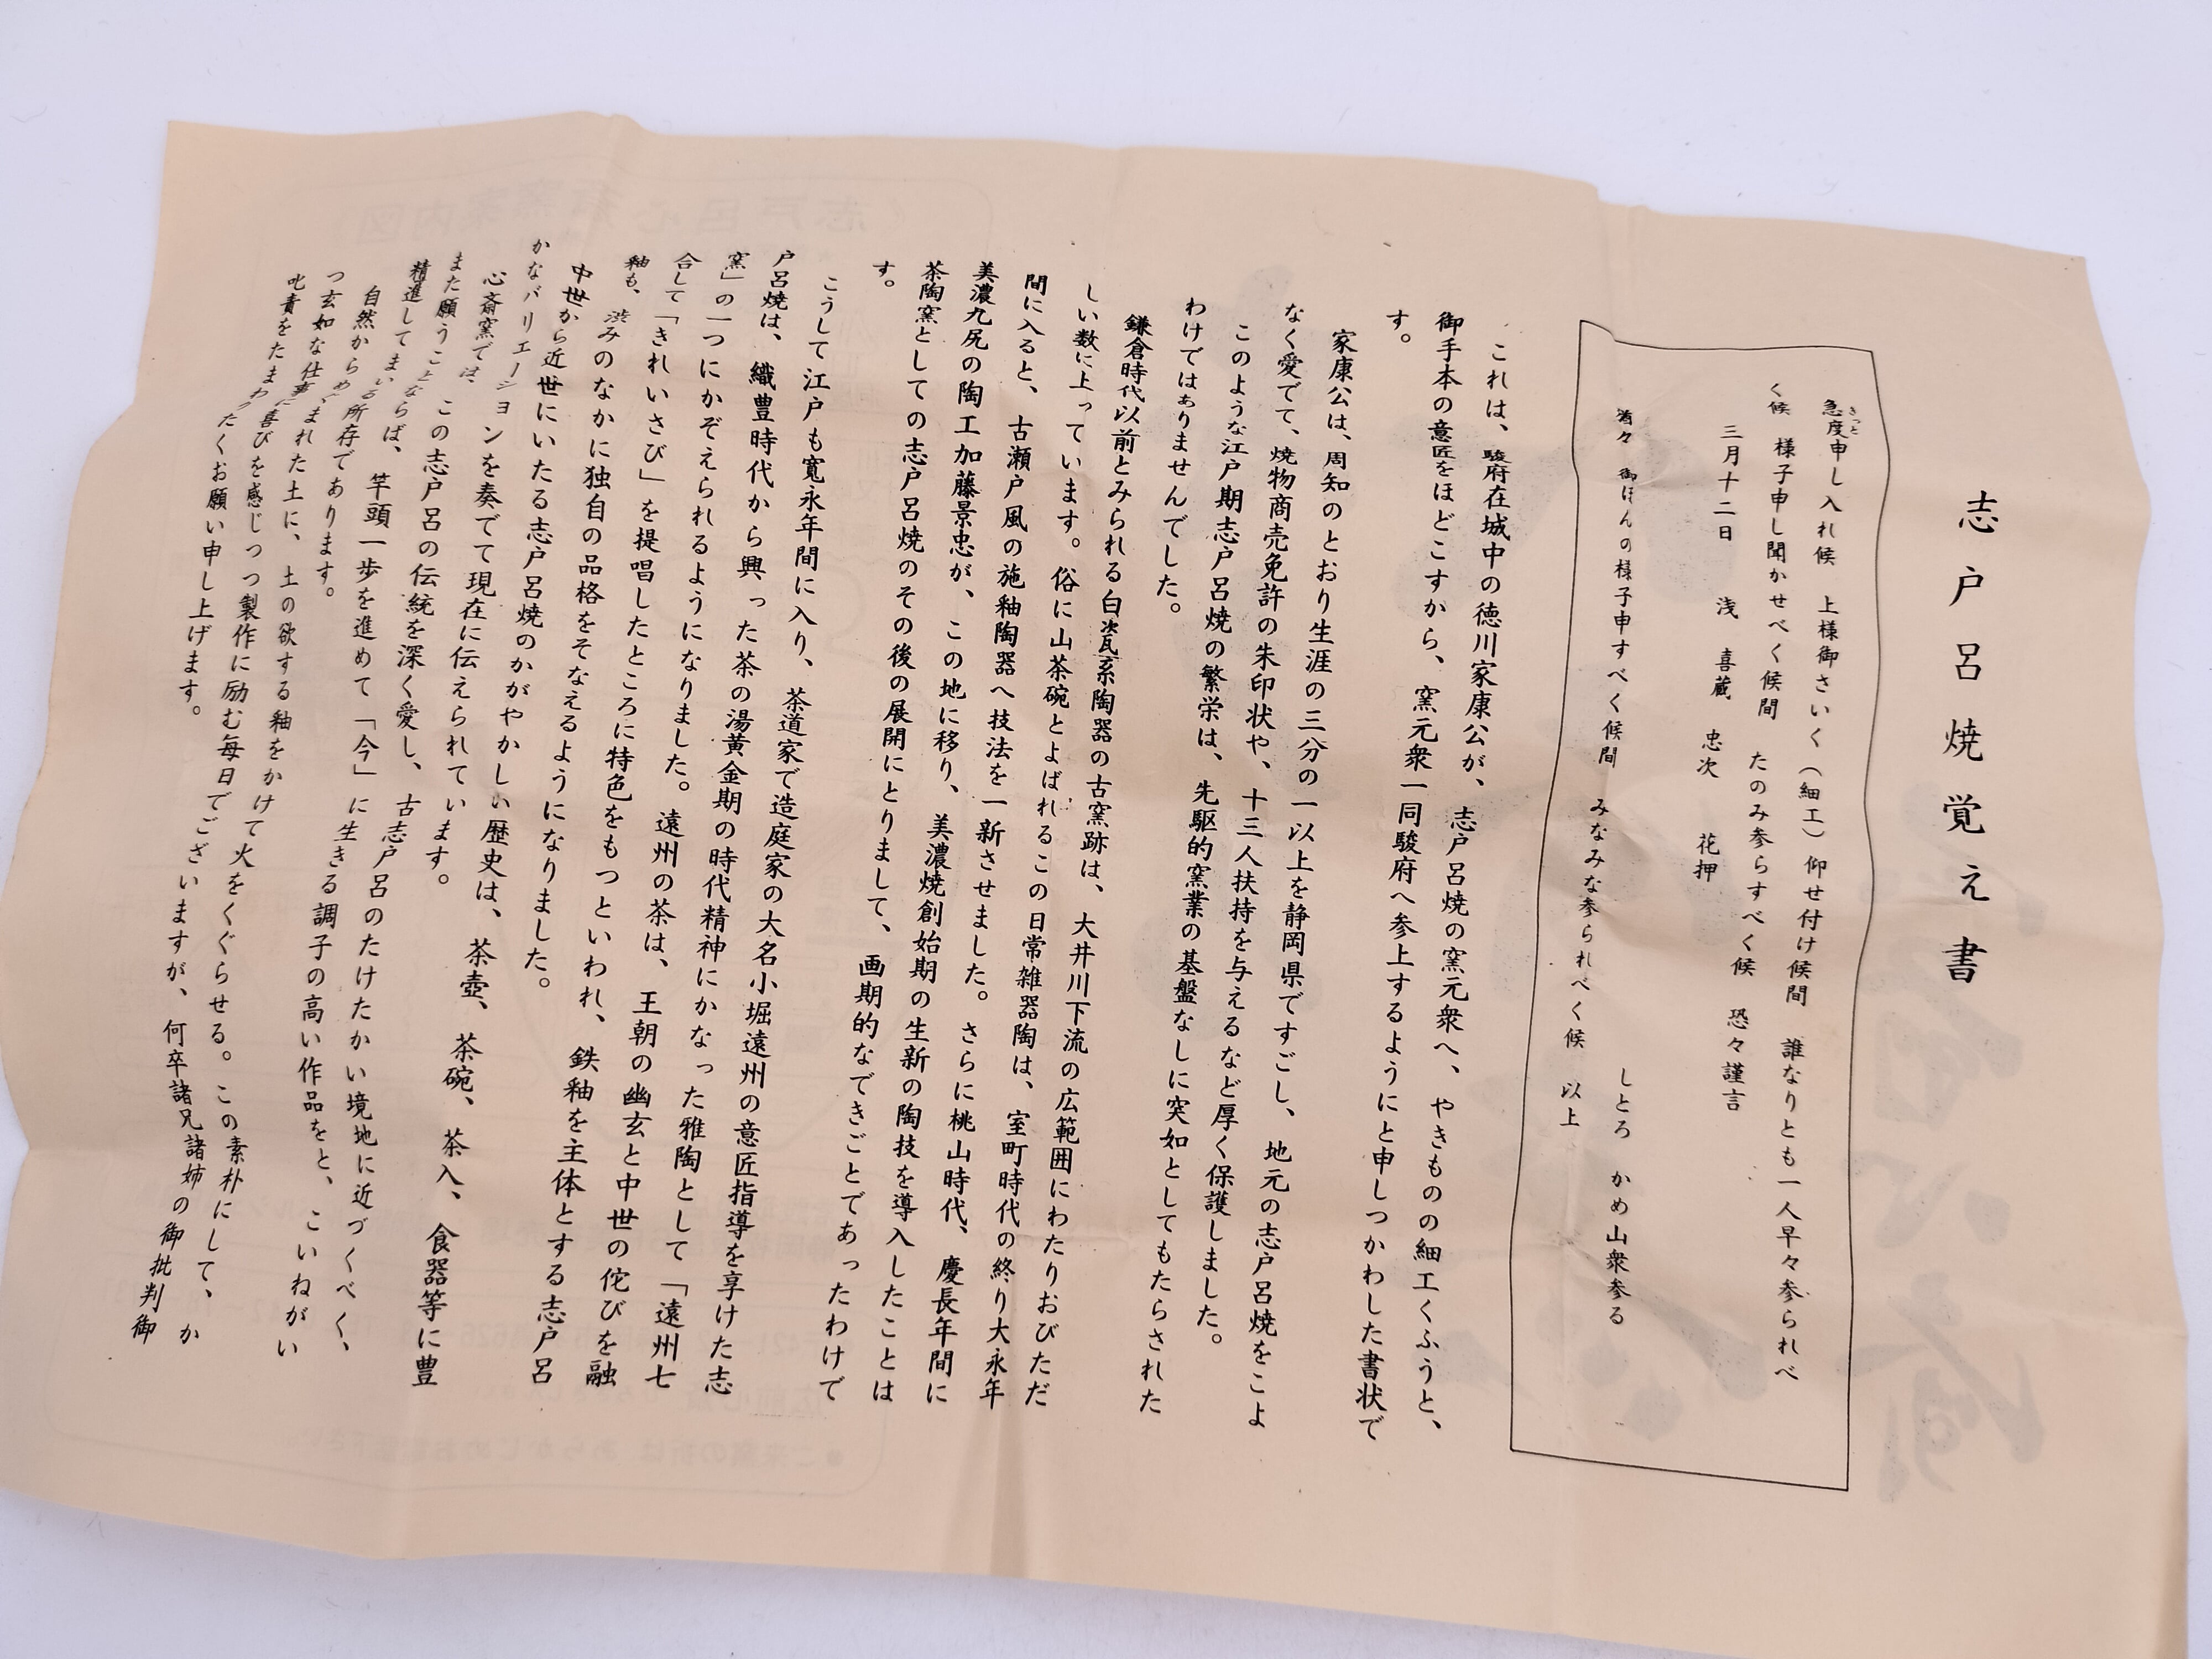 志戸呂焼覚え書
急度申し入れ候　上様御さいく（細工）仰せ付け候間　誰なりとも一人早々参られべ
きっと
く候　様子申し聞かせべく候間　たのみ参らすべく候　恐々謹言
三月十二日　浅　喜蔵　忠次　花押
しとろ　かめ山衆参る
猶々　御ほんの様子申すべく候間　みなみな参られべく候　以上
これは、駿府在城中の徳川家康公が、志戸呂焼の窯元衆へ、やきものの細工くふうと、
御手本の意匠をほどこすから、窯元衆一同駿府へ参上するようにと申しつかわした書状で
す。
家康公は、周知のとおり生涯の三分の一以上を静岡県ですごし、地元の志戸呂焼をこよ
なく愛でて、焼物商売免許の朱印状や、十三人扶持を与えるなど厚く保護しました。
このような江戸期志戸呂焼の繁栄は、先駆的窯業の基盤なしに突如としてもたらされた
わけではありませんでした。
鎌倉時代以前とみられる白瓷系陶器の古窯跡は、大井川下流の広範囲にわたりおびただ
しい数に上っています。俗に山茶碗とよばれるこの日常雑器陶は、室町時代の終り大永年
間に入ると、古瀬戸風の施釉陶器へ技法を一新させました。さらに桃山時代、慶長年間に
美濃九尻の陶工加藤景忠が、この地に移り、美濃焼創始期の生新の陶技を導入したことは
茶陶窯としての志戸呂焼のその後の展開にとりまして、画期的なできごとであったわけで
す。
こうして江戸も寛永年間に入り、茶道家で造庭家の大名小堀遠州の意匠指導を享けた志
戸呂焼は、織豊時代から興った茶の湯黄金期の時代精神にかなった雅陶として「遠州七
窯」の一つにかぞえられるようになりました。遠州の茶は、王朝の幽玄と中世の侘びを融
合して「きれいさび」を提唱したところに特色をもつといわれ、鉄釉を主体とする志戸呂
釉も、渋みのなかに独自の品格をそなえるようになりました。
中世から近世にいたる志戸呂焼のかがやかしい歴史は、茶壺、茶碗、茶入、食器等に豊
かなバリエーションを奏でて現在に伝えられています。
心斎窯では、この志戸呂の伝統を深く愛し、古志戸呂のたけたかい境地に近づくべく、
また願うことならば、竿頭一歩を進めて「今」に生きる調子の高い作品をと、こいねがい
精進してまいる所存であります。
自然からめぐまれた土に、土の欲する釉をかけて火をくぐらせる。この素朴にして、か
つ玄如な仕事に喜びを感じつつ製作に励む毎日でございますが、何卒諸兄諸姉の御批判御
叱責をたまわりたくお願い申し上げます。